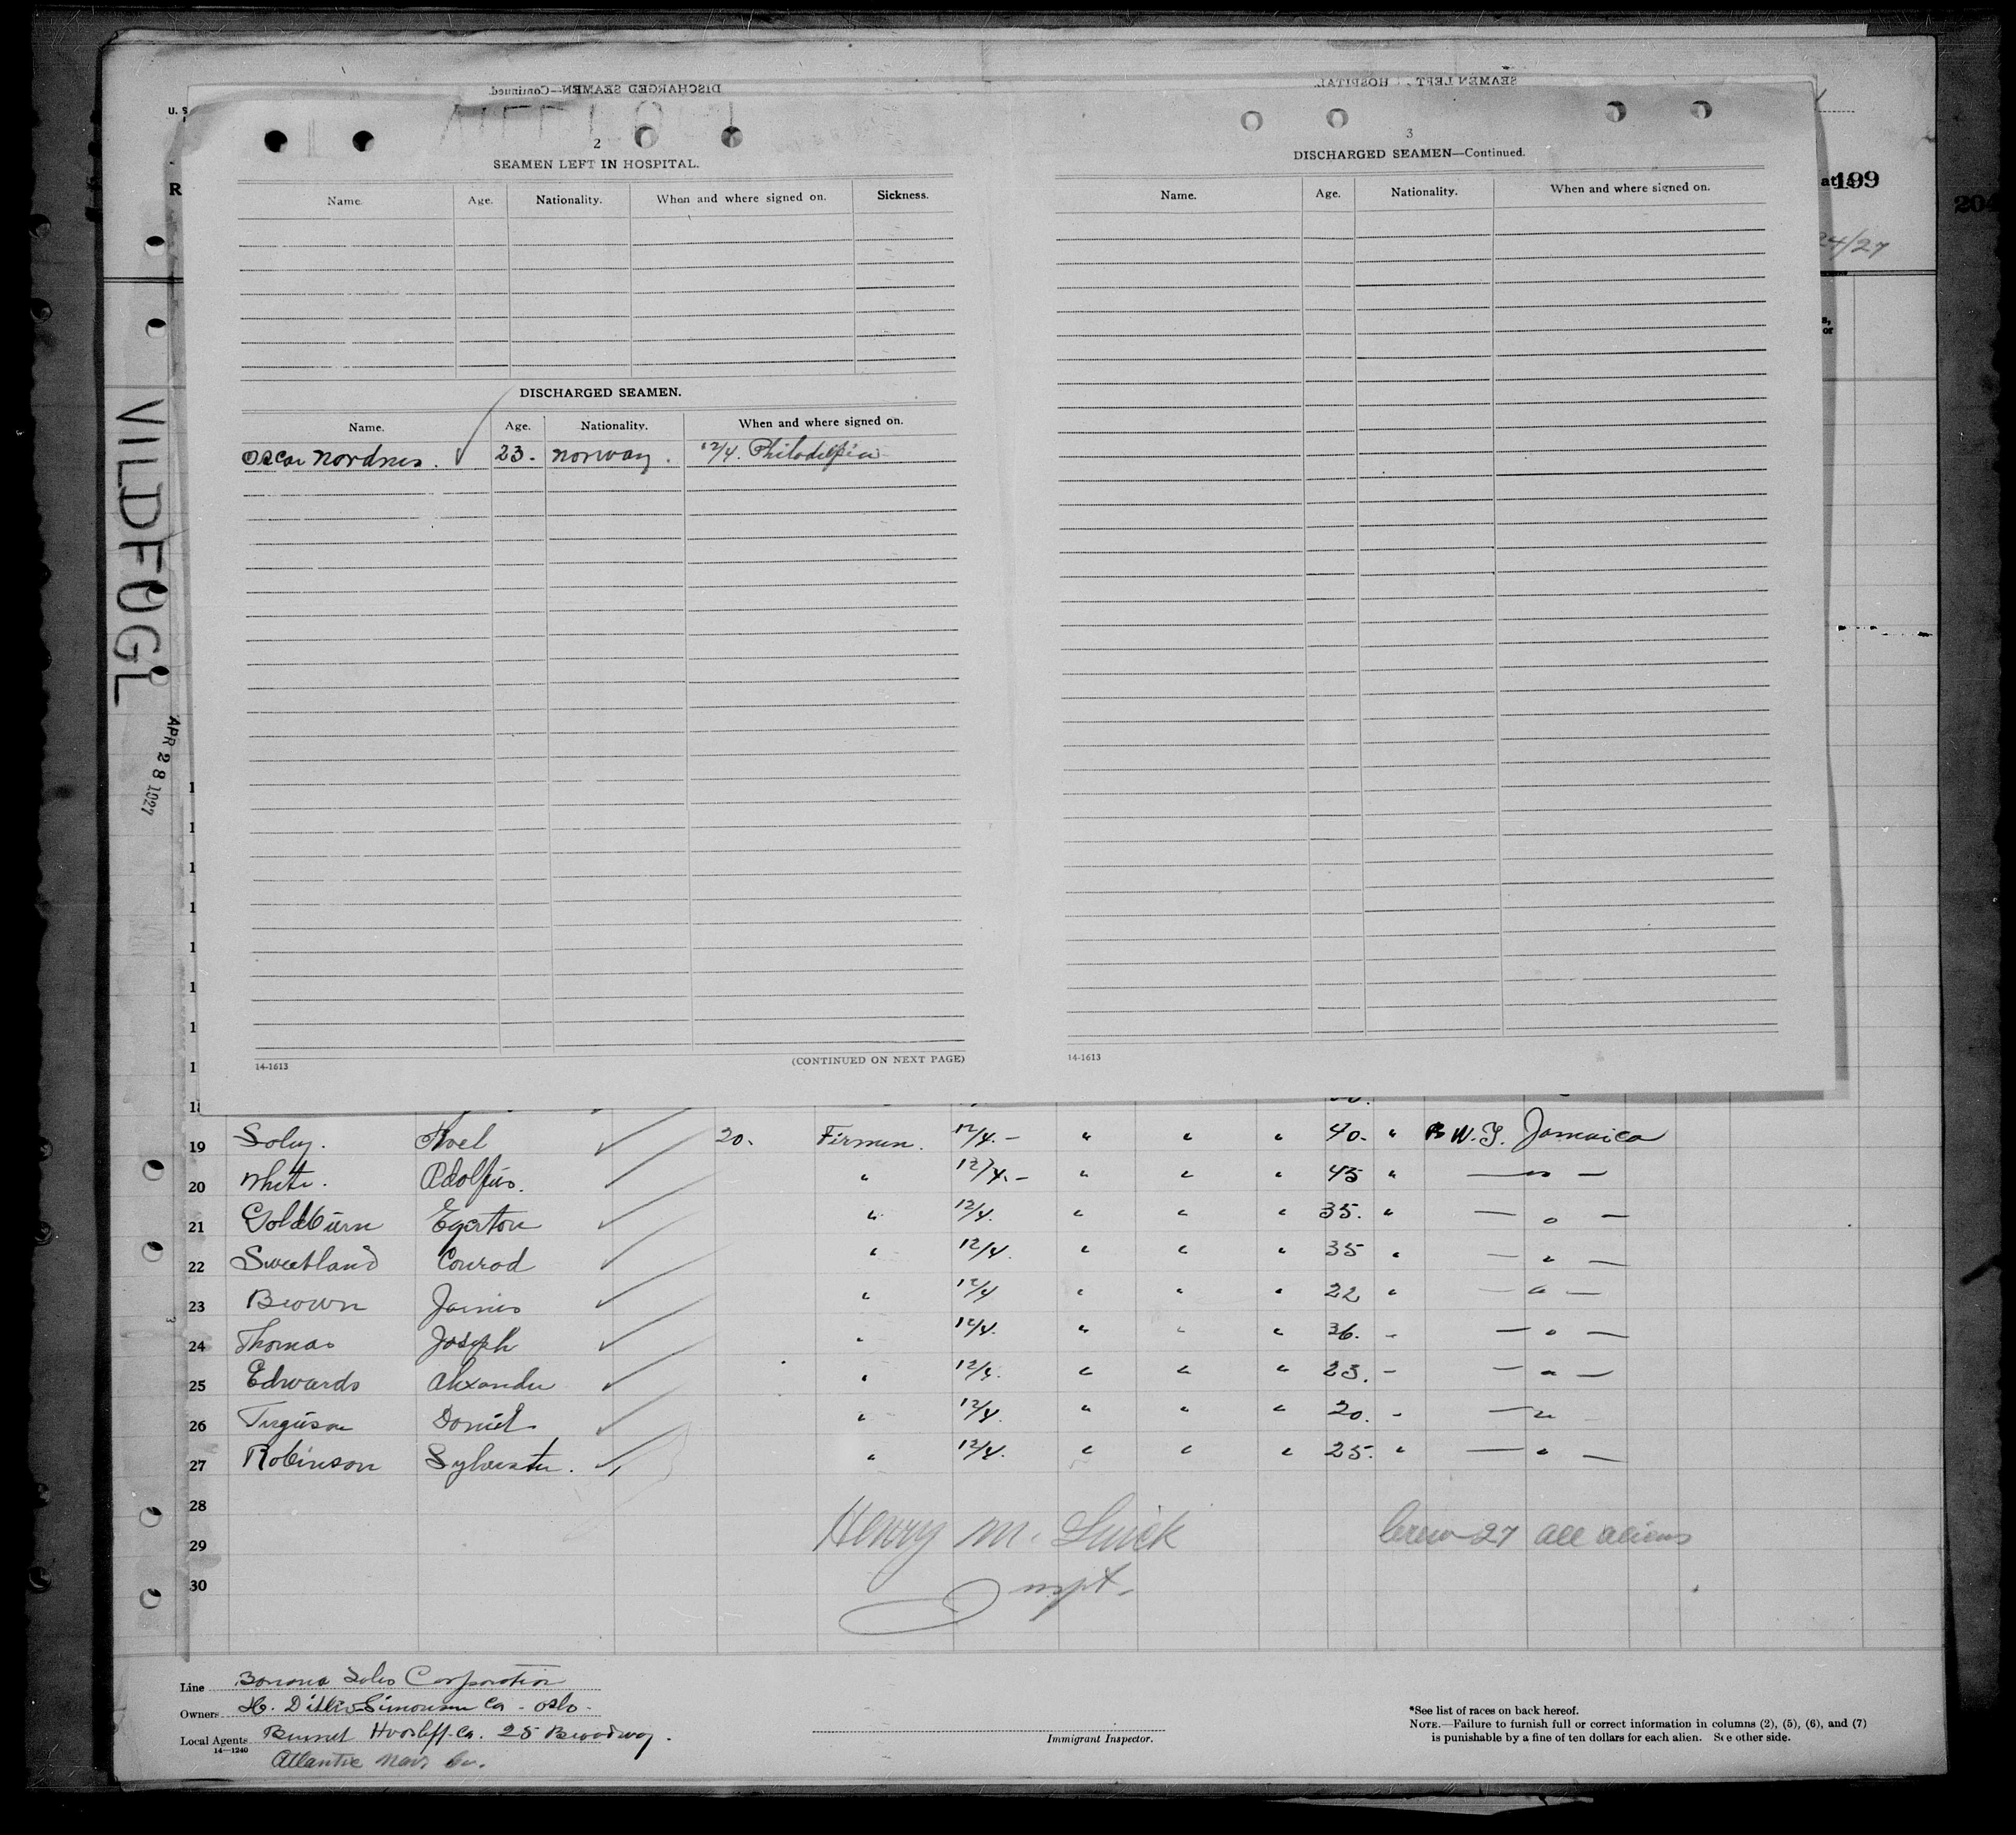 2
SEAMEN LEFT IN HOSPITAL.
Name. Age. Nationality. When and where signed on. Sickness.
DISCHARGED SEAMEN.
Name. Age. Nationality. When and where signed on.
Oscar Nordnes. 23. Norway. 12/4. Philadelphia
14-1613 (CONTINUED ON NEXT PAGE)
3
DISCHARGED SEAMEN—Continued.
Name. Age. Nationality. When and where signed on.
14-1613
DISCHARGED SEAMEN—Continued.
SEAMEN LEFT HOSPITAL
U. S
R
at 199
204
24/27
s,
or
VILDFUGL
APR 28 1927
19 Soley. 20. Firman. 12/4.- " " " 40. " B W. I. Jamaica
20 White. Adolfus. " 12/4.- " " " 45 " — " —
21 Goldburn Egerton " 12/4. " " " 35. " — " —
22 Sweetland Conrad " 12/4. " " " 35 " — " —
23 Brown James " 12/4 " " " 22 " — " —
24 Thomas Joseph " 12/4. " " " 36. - — " —
25 Edwards Alexander " 12/4. " " " 23. - — " —
26 Ferguson Daniel " 12/4. " " " 20. - — " —
27 Robinson Sylvester. " 12/4. " " " 25. " — " —
28
29
30
Henry M.
Inspt-
Crew 27 all aliens
Line Banana Sales Corporation
Owners H. Ditlev-Simonsen Co - Oslo-
Local Agents Co. 25 Broadway.
14—1240
Atlantic Nav. Co.
Immigrant Inspector.
*See list of races on back hereof.
NOTE.—Failure to furnish full or correct information in columns (2), (5), (6), and (7)
is punishable by a fine of ten dollars for each alien. See other side.